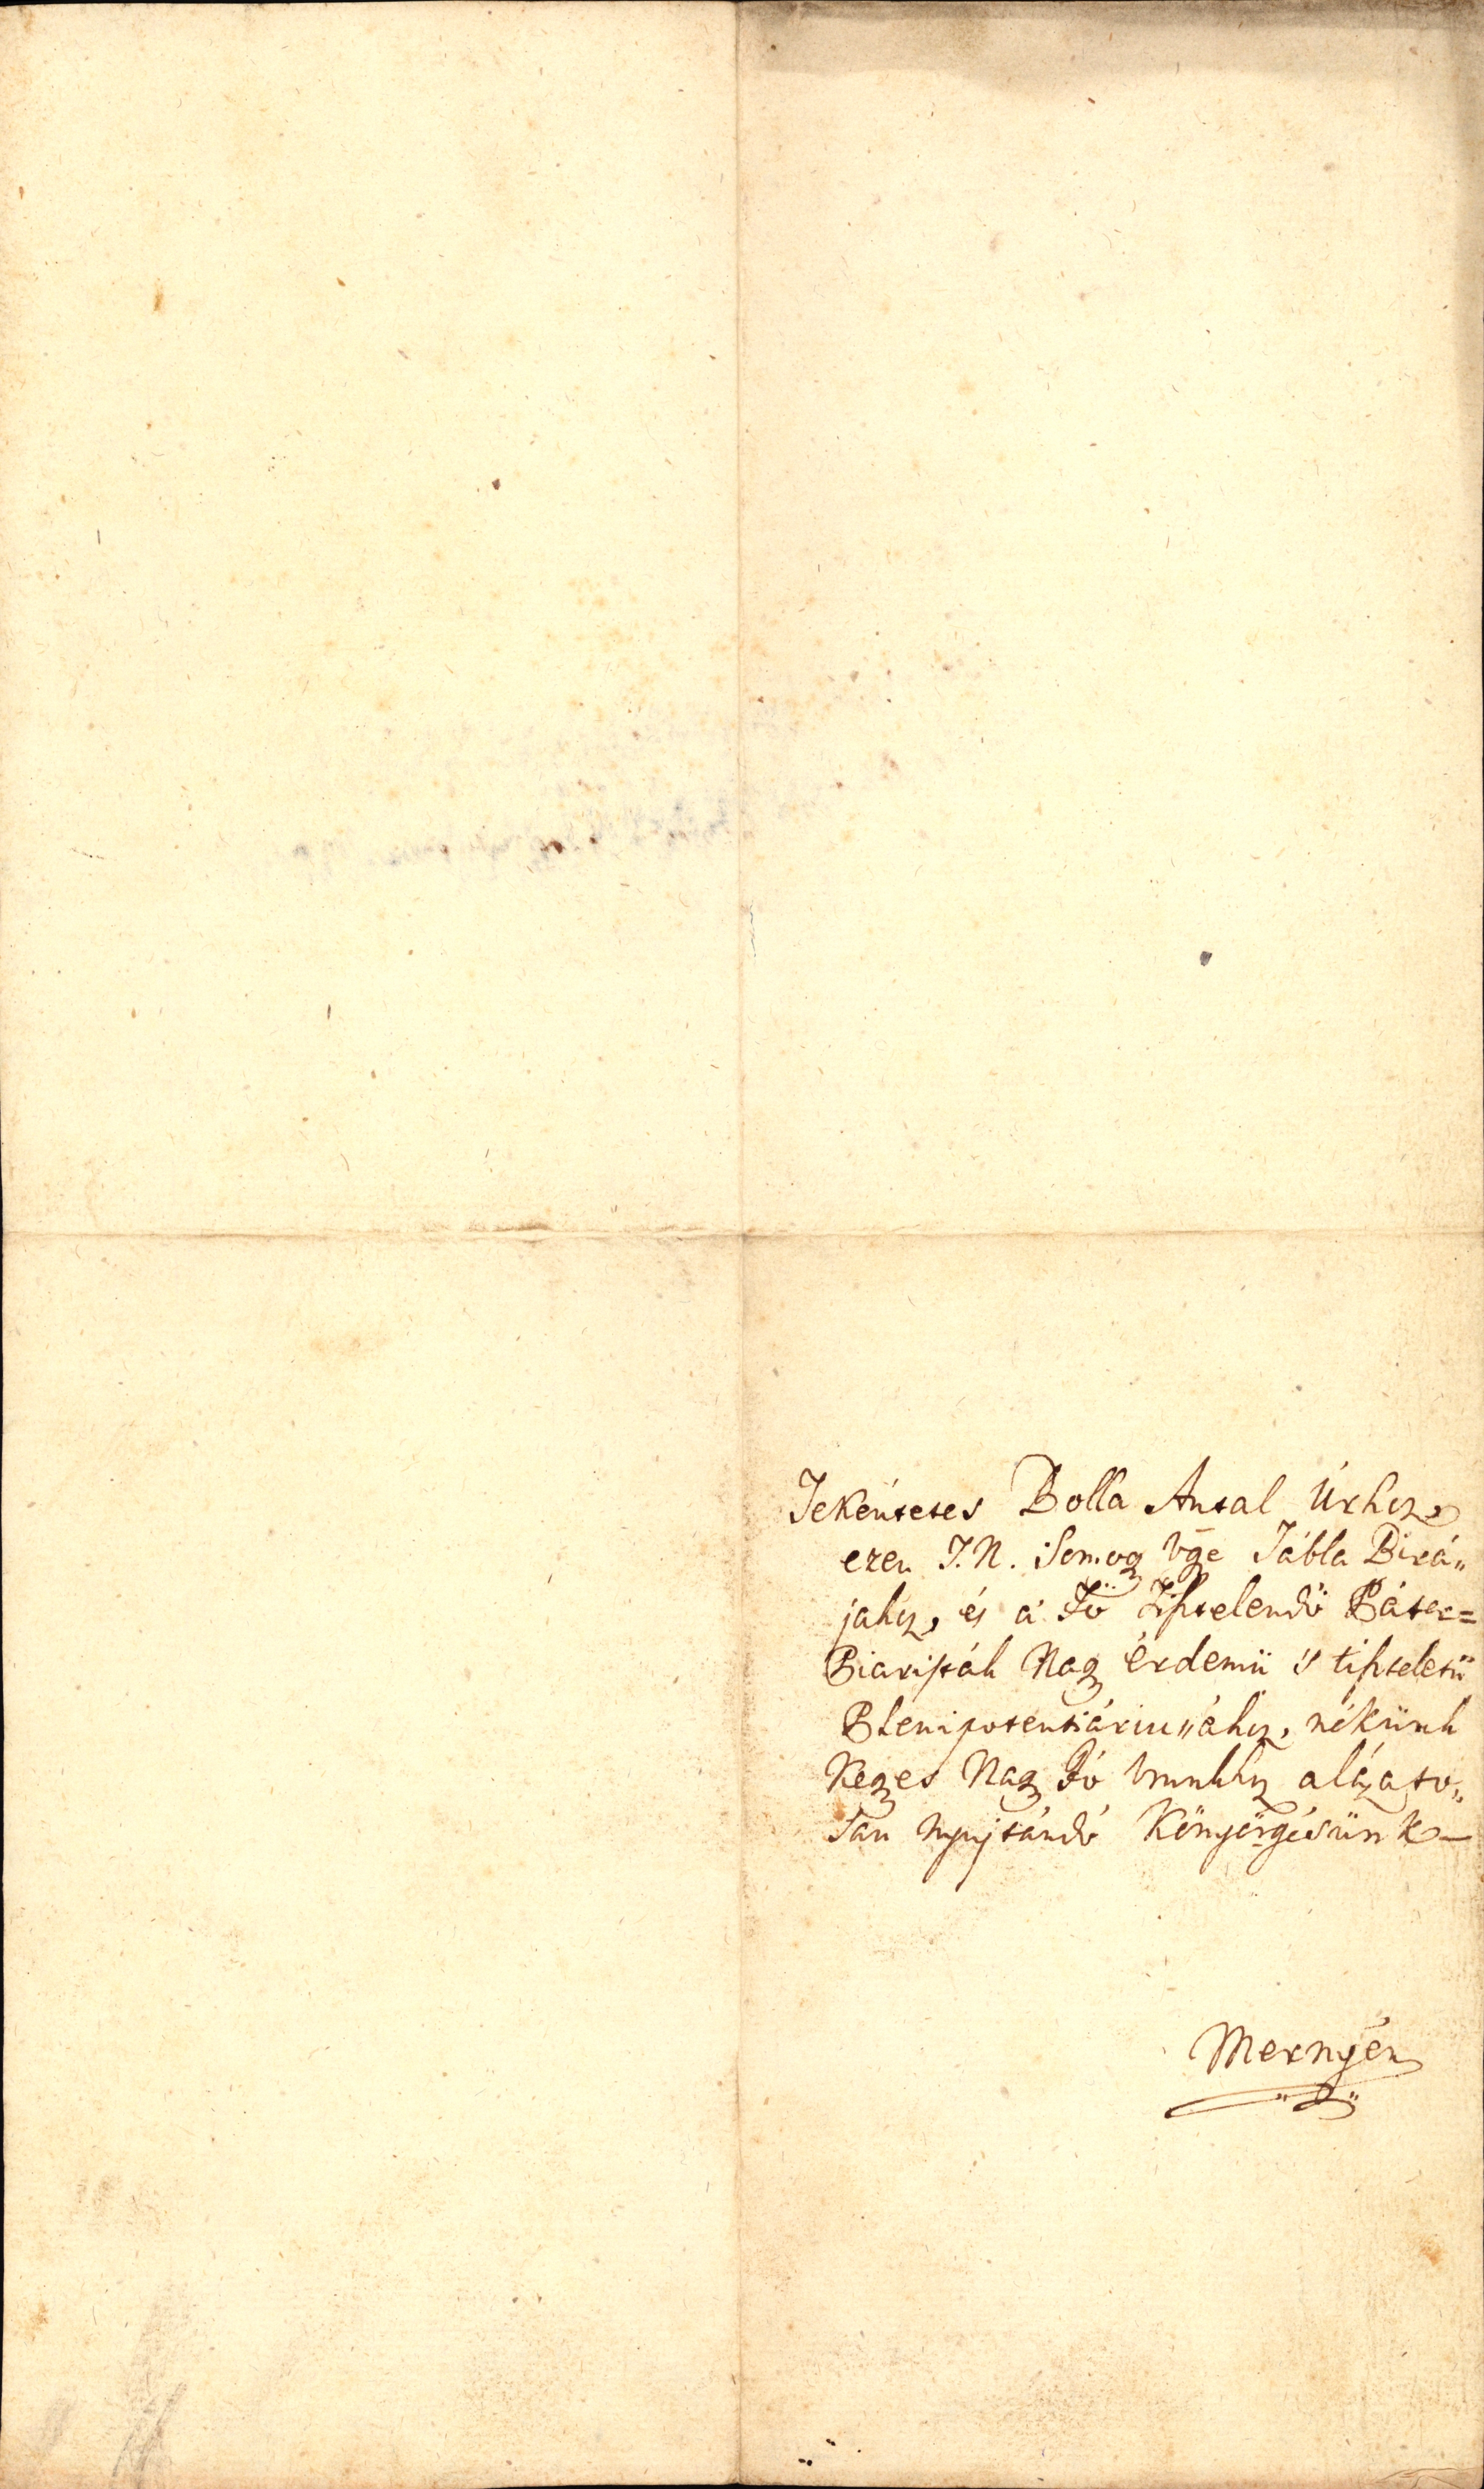 Tekéntetes Bolla Antal Úrhoz,
ezen T. N. Somogy Vgē Tábla Birá„
jahoz, és a' Fő Tisztelendő Páter=
Piaristák Nagy érdemü 's tisztelető
Plenipotentiáriussához, nékünk
Kegyes Nagy Jó Vrunkhoz alázato„
san nyujtandó Könyörgésünk —
Mernyén